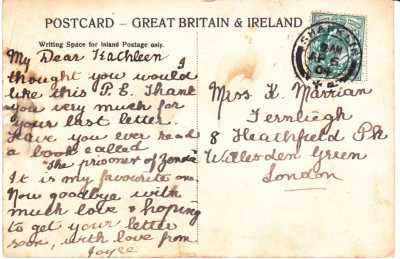 POSTCARD - GREAT BRITAIN & IRELAND
Writing Space for Inland Postage only.
My Dear Kathleen I
thought you would
like this P.C. Thank
you very much for
your last letter.
Have you ever read
a book called
"The prisoner of Zenda"
It is my favourite one
Now goodbye with
much love & hoping
to get your letter
soon, with love from
Joyce
Miss K. Marrian
Fernleigh
8 Heathfield Pk
Willesden Green
London